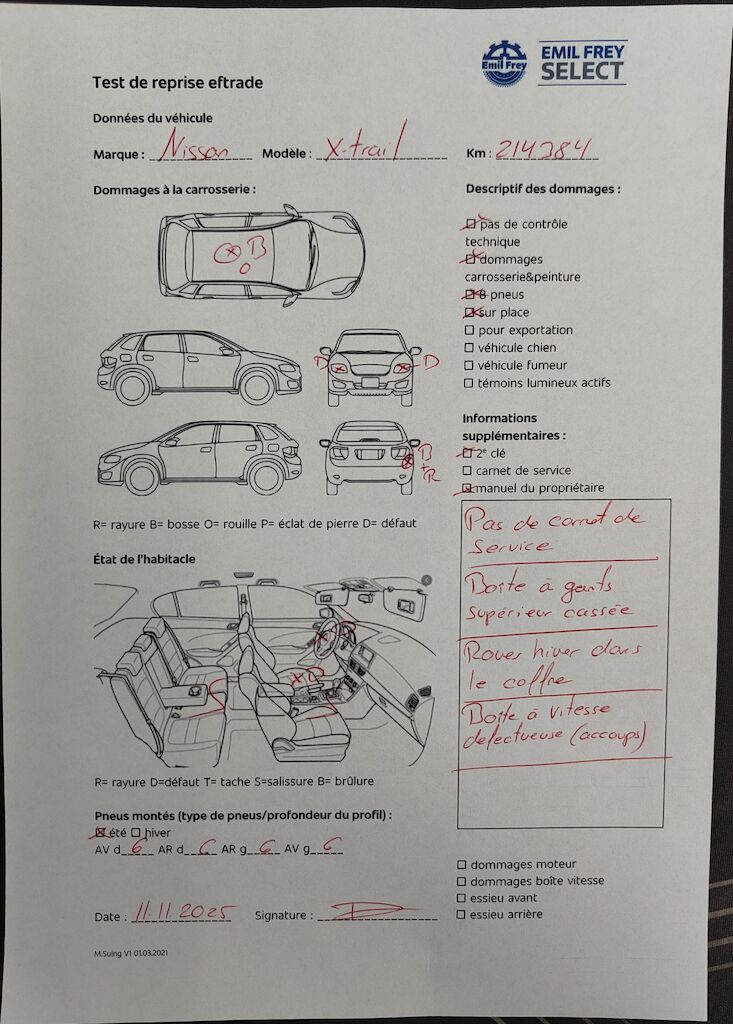 Emil Frey
EMIL FREY
SELECT
Test de reprise eftrade
Données du véhicule
Marque : Nissan Modèle : X-trail Km : 214384
Dommages à la carrosserie :
B
O
D D
B
+
R
R= rayure B= bosse O= rouille P= éclat de pierre D= défaut
État de l'habitacle
D
R= rayure D=défaut T= tache S=salissure B= brûlure
Pneus montés (type de pneus/profondeur du profil) :
☒ été ☐ hiver
AV d 6 AR d 6 AR g 6 AV g 6
Date : 11.11.2025 Signature :
M.Suing V1 01.03.2021
Descriptif des dommages :
☒ pas de contrôle
technique
☒ dommages
carrosserie&peinture
☒ 8 pneus
☒ sur place
☐ pour exportation
☐ véhicule chien
☐ véhicule fumeur
☐ témoins lumineux actifs
Informations
supplémentaires :
☒ 2e clé
☐ carnet de service
☒ manuel du propriétaire
Pas de carnet de
service
Boîte à gants
supérieur cassée
Roues hiver dans
le coffre
Boîte à vitesse
defectueuse (accoups)
☐ dommages moteur
☐ dommages boîte vitesse
☐ essieu avant
☐ essieu arrière